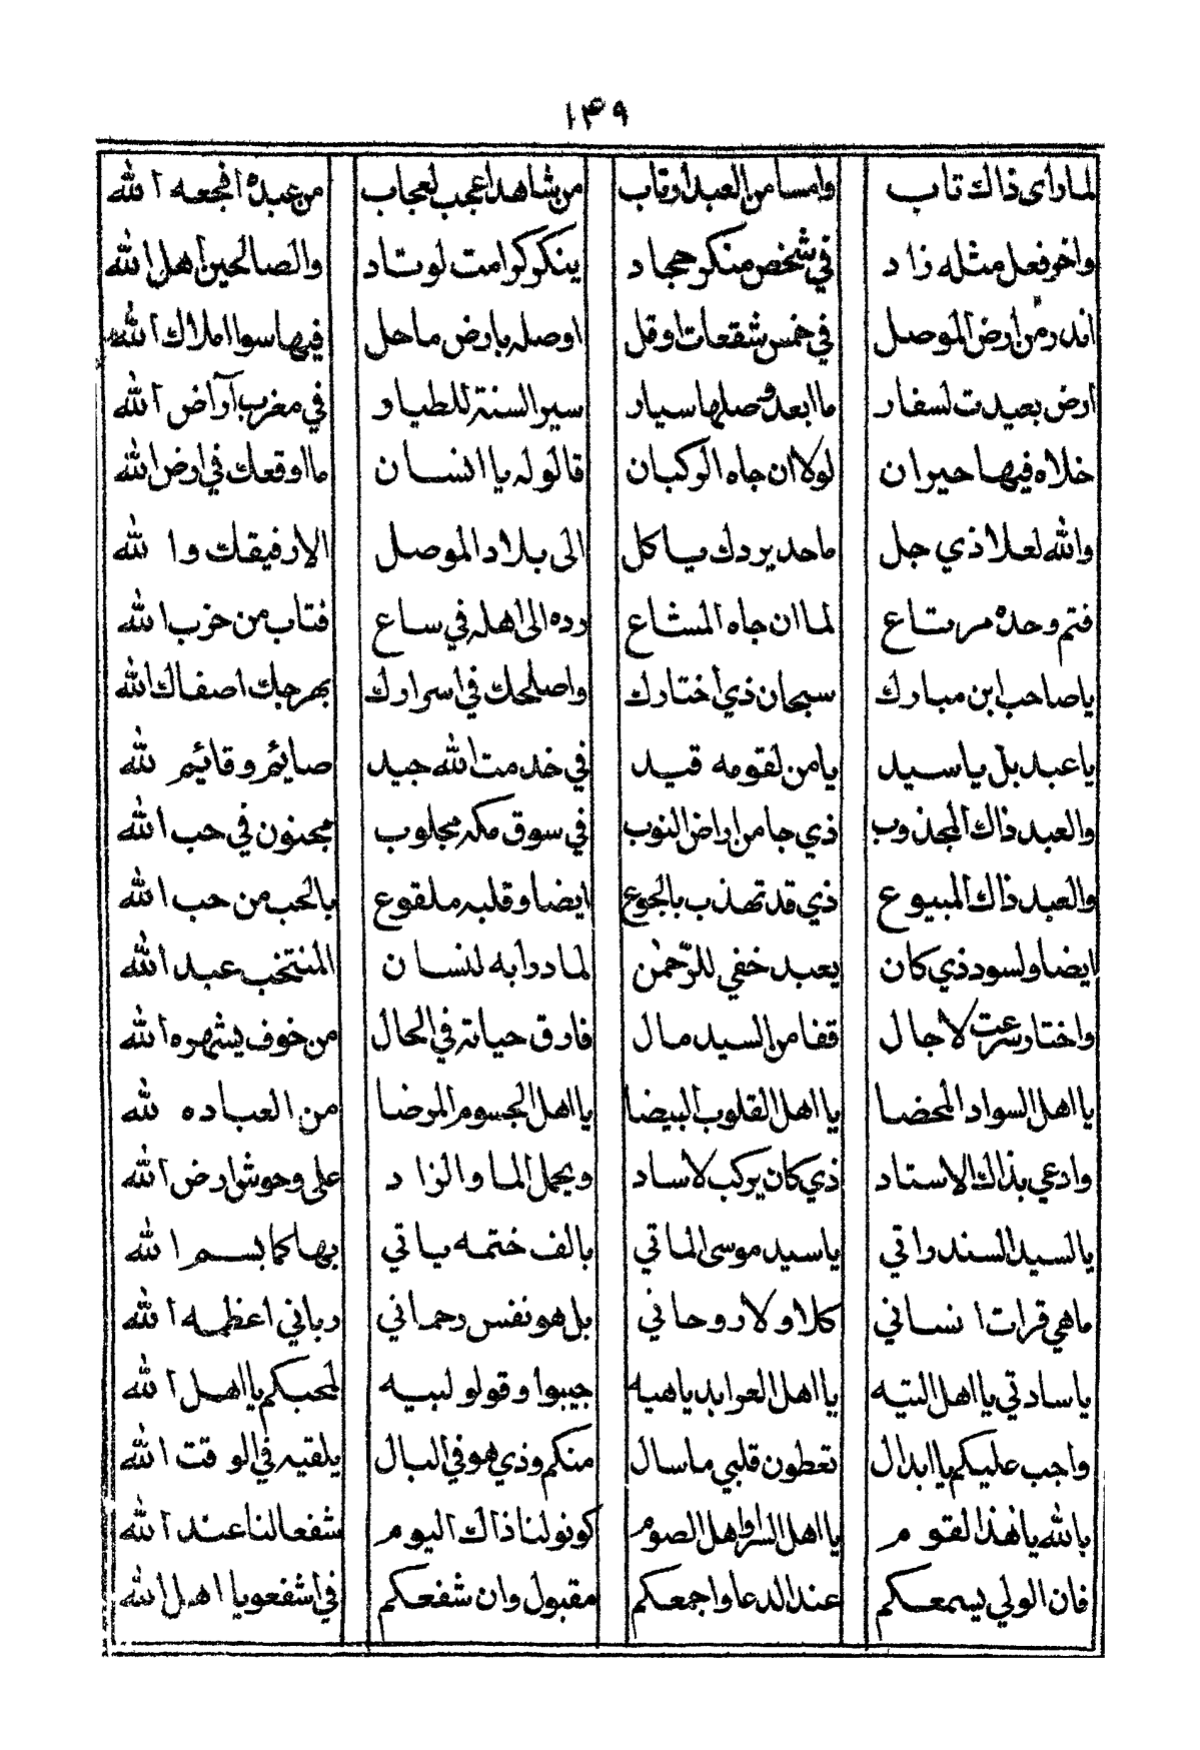 ١٤٩
لما رأى ذاك تاب وامسا من العبد ارتاب من شاهد اعجب لعجاب من عبدہ افجعه الله
واخر فعل مثله زاد في شخص منكر حجاد ينكر كرامت لوتاد والصالحين اهل الله
اندر من ارض الموصل في خمس شقعات اوقل اوصله بارض ماحل فيها سوا املاك الله
ارض بعيدت لسفار ما ابعد وصلها سيار سير السنة للطيار في مغرب آراض الله
خلاه فيها حيران لولا ان جاه الركبان قالوله يا انسان ما اوقعك في ارض الله
والله لعلا ذي جل ماحد يردك ياكل الى بلاد الموصل الا رفيقك والله
فتم وحده مرتاع لما ان جاه المشاع رده الى اهله في ساع فتاب من حزب الله
ياصاحب ابن مبارك سبحان ذي اختارك واصلحك في اسرارك بهرجك اصفاك الله
يا عبد بل ياسيد يامن لقومه قيد في خدمت الله جيد صائم وقائم لله
والعبد ذاك المجذوب ذي جا من اراض النوب في سوق مكه مجلوب مجنون في حب الله
والعبد ذاك المبيوع ذي قد تهذب بالجوع ايضا وقلبه ملقوع بالحب من حب الله
ايضا ولسود ذي كان يعبد خفي للرّحمٰن لما دروا به لنسان المنتخب عبد الله
واختار سرعت لاجال قفا من السيد مال فارق حياته في الحال من خوف يشهره الله
يا اهل السواد المحضا يا اهل القلوب البيضا يا اهل الجسوم المرضا من العباده لله
وادعي بذاك الاستاد ذي كان يركب لاساد ويحمل الما والزاد على وحوش ارض الله
يالسيد السندراتي ياسيد موسى الماتي بالف ختمه ياتي بها كما بسم الله
ماهي قرات انساني كلا ولا روحاني بل هو نفس رحماني رباني اعظمه الله
ياسادتي يا اهل التيه يا اهل العوايد ياهيه جيبوا وقولو لبيه لمحبكم يا اهل الله
واجب عليكم يا ابدال تعطون قلبي ماسال منكم وذي هو في البال يلقيه في الوقت الله
بالله يا نهذا القوم يا اهل السرا واهل الصوم كونو لنا ذاك اليوم شفعا لنا عند الله
فان الولي يسمعكم عند الدعا واجمعكم مقبول وان شفعكم في اشفعو يا اهل الله